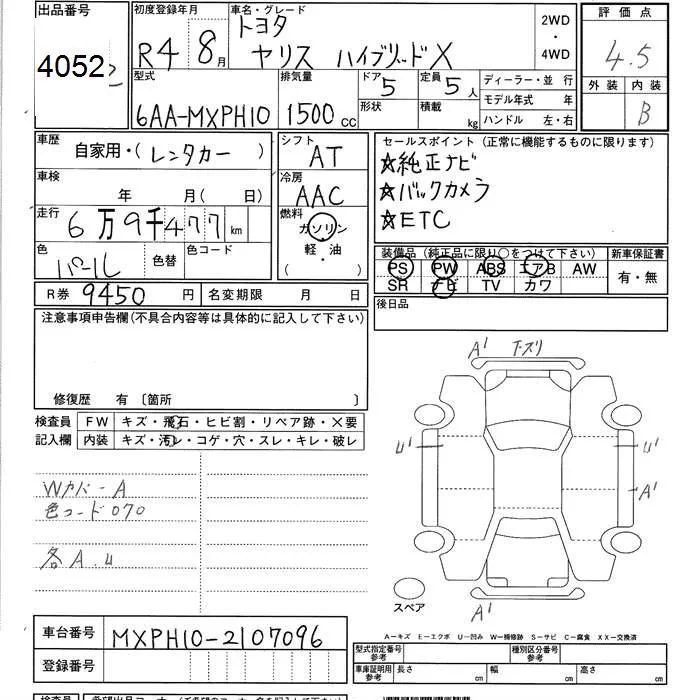 出品番号
4052
初度登録年月
R4 8月
車名・グレード
トヨタ
ヤリス ハイブリッドX
2WD
・
4WD
評価点
4.5
外装 内装
B
型式
6AA-MXPH10
排気量
1500cc
ドア
5
形状
定員
5人
積載
kg
ディーラー・並行
モデル年式 年
ハンドル 左・右
車歴
自家用・(レンタカー)
車検
年 月(日)
走行
6万9千477km
色
パール
色替
色コード
シフト
AT
冷房
AAC
燃料
ガソリン
軽・油
( ・ )
セールスポイント(正常に機能するものに限ります)
☆純正ナビ
☆バックカメラ
☆ETC
装備品(純正品に限り○をつけて下さい)
PS PW ABS エアB AW
SR ナビ TV カワ
新車保証書
有・無
後日品
R券 9450円
名変期限 月 日
注意事項申告欄(不具合内容等は具体的に記入して下さい)
修復歴 有〔箇所 〕
検査員
記入欄
FW キズ・飛石・ヒビ割・リペア跡・×要
内装 キズ・汚レ・コゲ・穴・スレ・キレ・破レ
Wカバー A
色コード 070
各A.U
A' 下ズリ
U' U'
A'
スペア
A'
A-キズ E-エクボ U-凹み W-補修跡 S-サビ C-腐食 XX-交換済
車台番号
MXPH10-2107096
登録番号
型式指定番号
参考
種別区分番号
参考
車庫証明用
参考
長さ cm 幅 cm 高さ cm